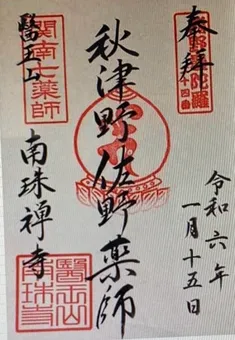 奉拝
令和六年
一月十五日
秋津野佐野薬師
関南七薬師
醫王山
南珠禅寺
醫王山
南珠寺